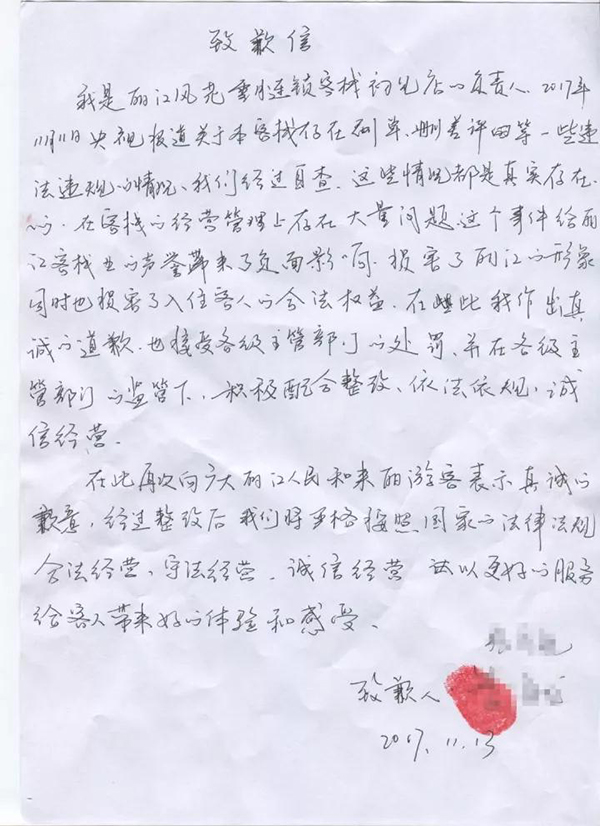 致歉信
我是丽江风花雪月连锁客栈初见店的负责人.2017年
11月11日央视报道关于本客栈存在刷单、删差评四等一些违
法违规的情况、我们经过自查.这些情况都是真实存在
的.在客栈的经营管理上存在大量问题.这个事件给丽
江客栈业的声誉带来了负面影响.损害了丽江的形象
同时也损害了入住客人的合法权益.在此我作出真
诚的道歉.也接受各级主管部门的处罚、并在各级主
管部门的监管下、积极配合整改、依法依规、诚
信经营.
在此再次向广大丽江人民和来丽游客表示真诚的
歉意,经过整改后我们将严格按照国家的法律法规
合法经营、守法经营.诚信经营 以更好的服务
给客人带来好的体验和感受.
致歉人
2017.11.13